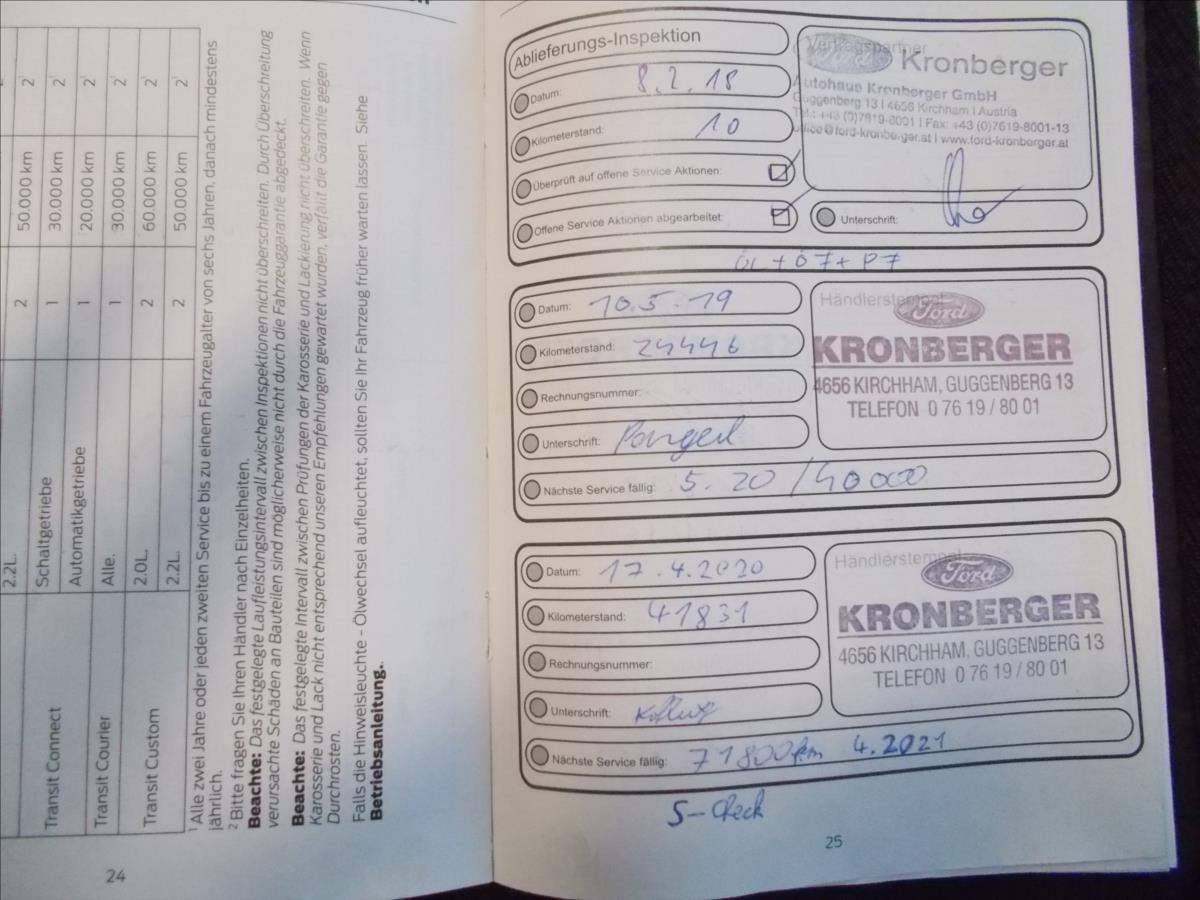 2 50.000 km 2
Schaltgetriebe 1 30.000 km 2
Transit Connect Automatikgetriebe 1 20.000 km 2
Transit Courier Alle. 1 30.000 km 2
Transit Custom 2.0L. 2 60.000 km 2
2.2L. 2 50.000 km 2
2.2L.
1 Alle zwei Jahre oder jeden zweiten Service bis zu einem Fahrzeugalter von sechs Jahren, danach mindestens
jährlich.
2 Bitte fragen Sie Ihren Händler nach Einzelheiten.
Beachte: Das festgelegte Laufleistungsintervall zwischen Inspektionen nicht überschreiten. Durch Überschreitung
verursachte Schäden an Bauteilen sind möglicherweise nicht durch die Fahrzeuggarantie abgedeckt.
Beachte: Das festgelegte Intervall zwischen Prüfungen der Karosserie und Lackierung nicht überschreiten. Wenn
Karosserie und Lack nicht entsprechend unseren Empfehlungen gewartet wurden, verfällt die Garantie gegen
Durchrosten.
Falls die Hinweisleuchte - Ölwechsel aufleuchtet, sollten Sie Ihr Fahrzeug früher warten lassen. Siehe
Betriebsanleitung.
24
Ablieferungs-Inspektion
Datum: 8.2.18
Kilometerstand: 10
Überprüft auf offene Service Aktionen:
Offene Service Aktionen abgearbeitet:
Vertragspartner
Ford Kronberger
Autohaus Kronberger GmbH
Guggenberg 13 | 4656 Kirchham | Austria
Tel.: +43 (0)7619-8001 | Fax: +43 (0)7619-8001-13
office@ford-kronberger.at | www.ford-kronberger.at
Unterschrift:
ÖL + ÖF + PF
Datum: 10.5.19
Kilometerstand: 24446
Rechnungsnummer:
Unterschrift:
Nächste Service fällig: 5.20 / 40000
Händlerstempel
Ford
KRONBERGER
4656 KIRCHHAM, GUGGENBERG 13
TELEFON 0 76 19 / 80 01
Datum: 17.4.2020
Kilometerstand: 41831
Rechnungsnummer:
Unterschrift:
Nächste Service fällig: 71800km 4.2021
Händlerstempel
Ford
KRONBERGER
4656 KIRCHHAM, GUGGENBERG 13
TELEFON 0 76 19 / 80 01
S-Check
25